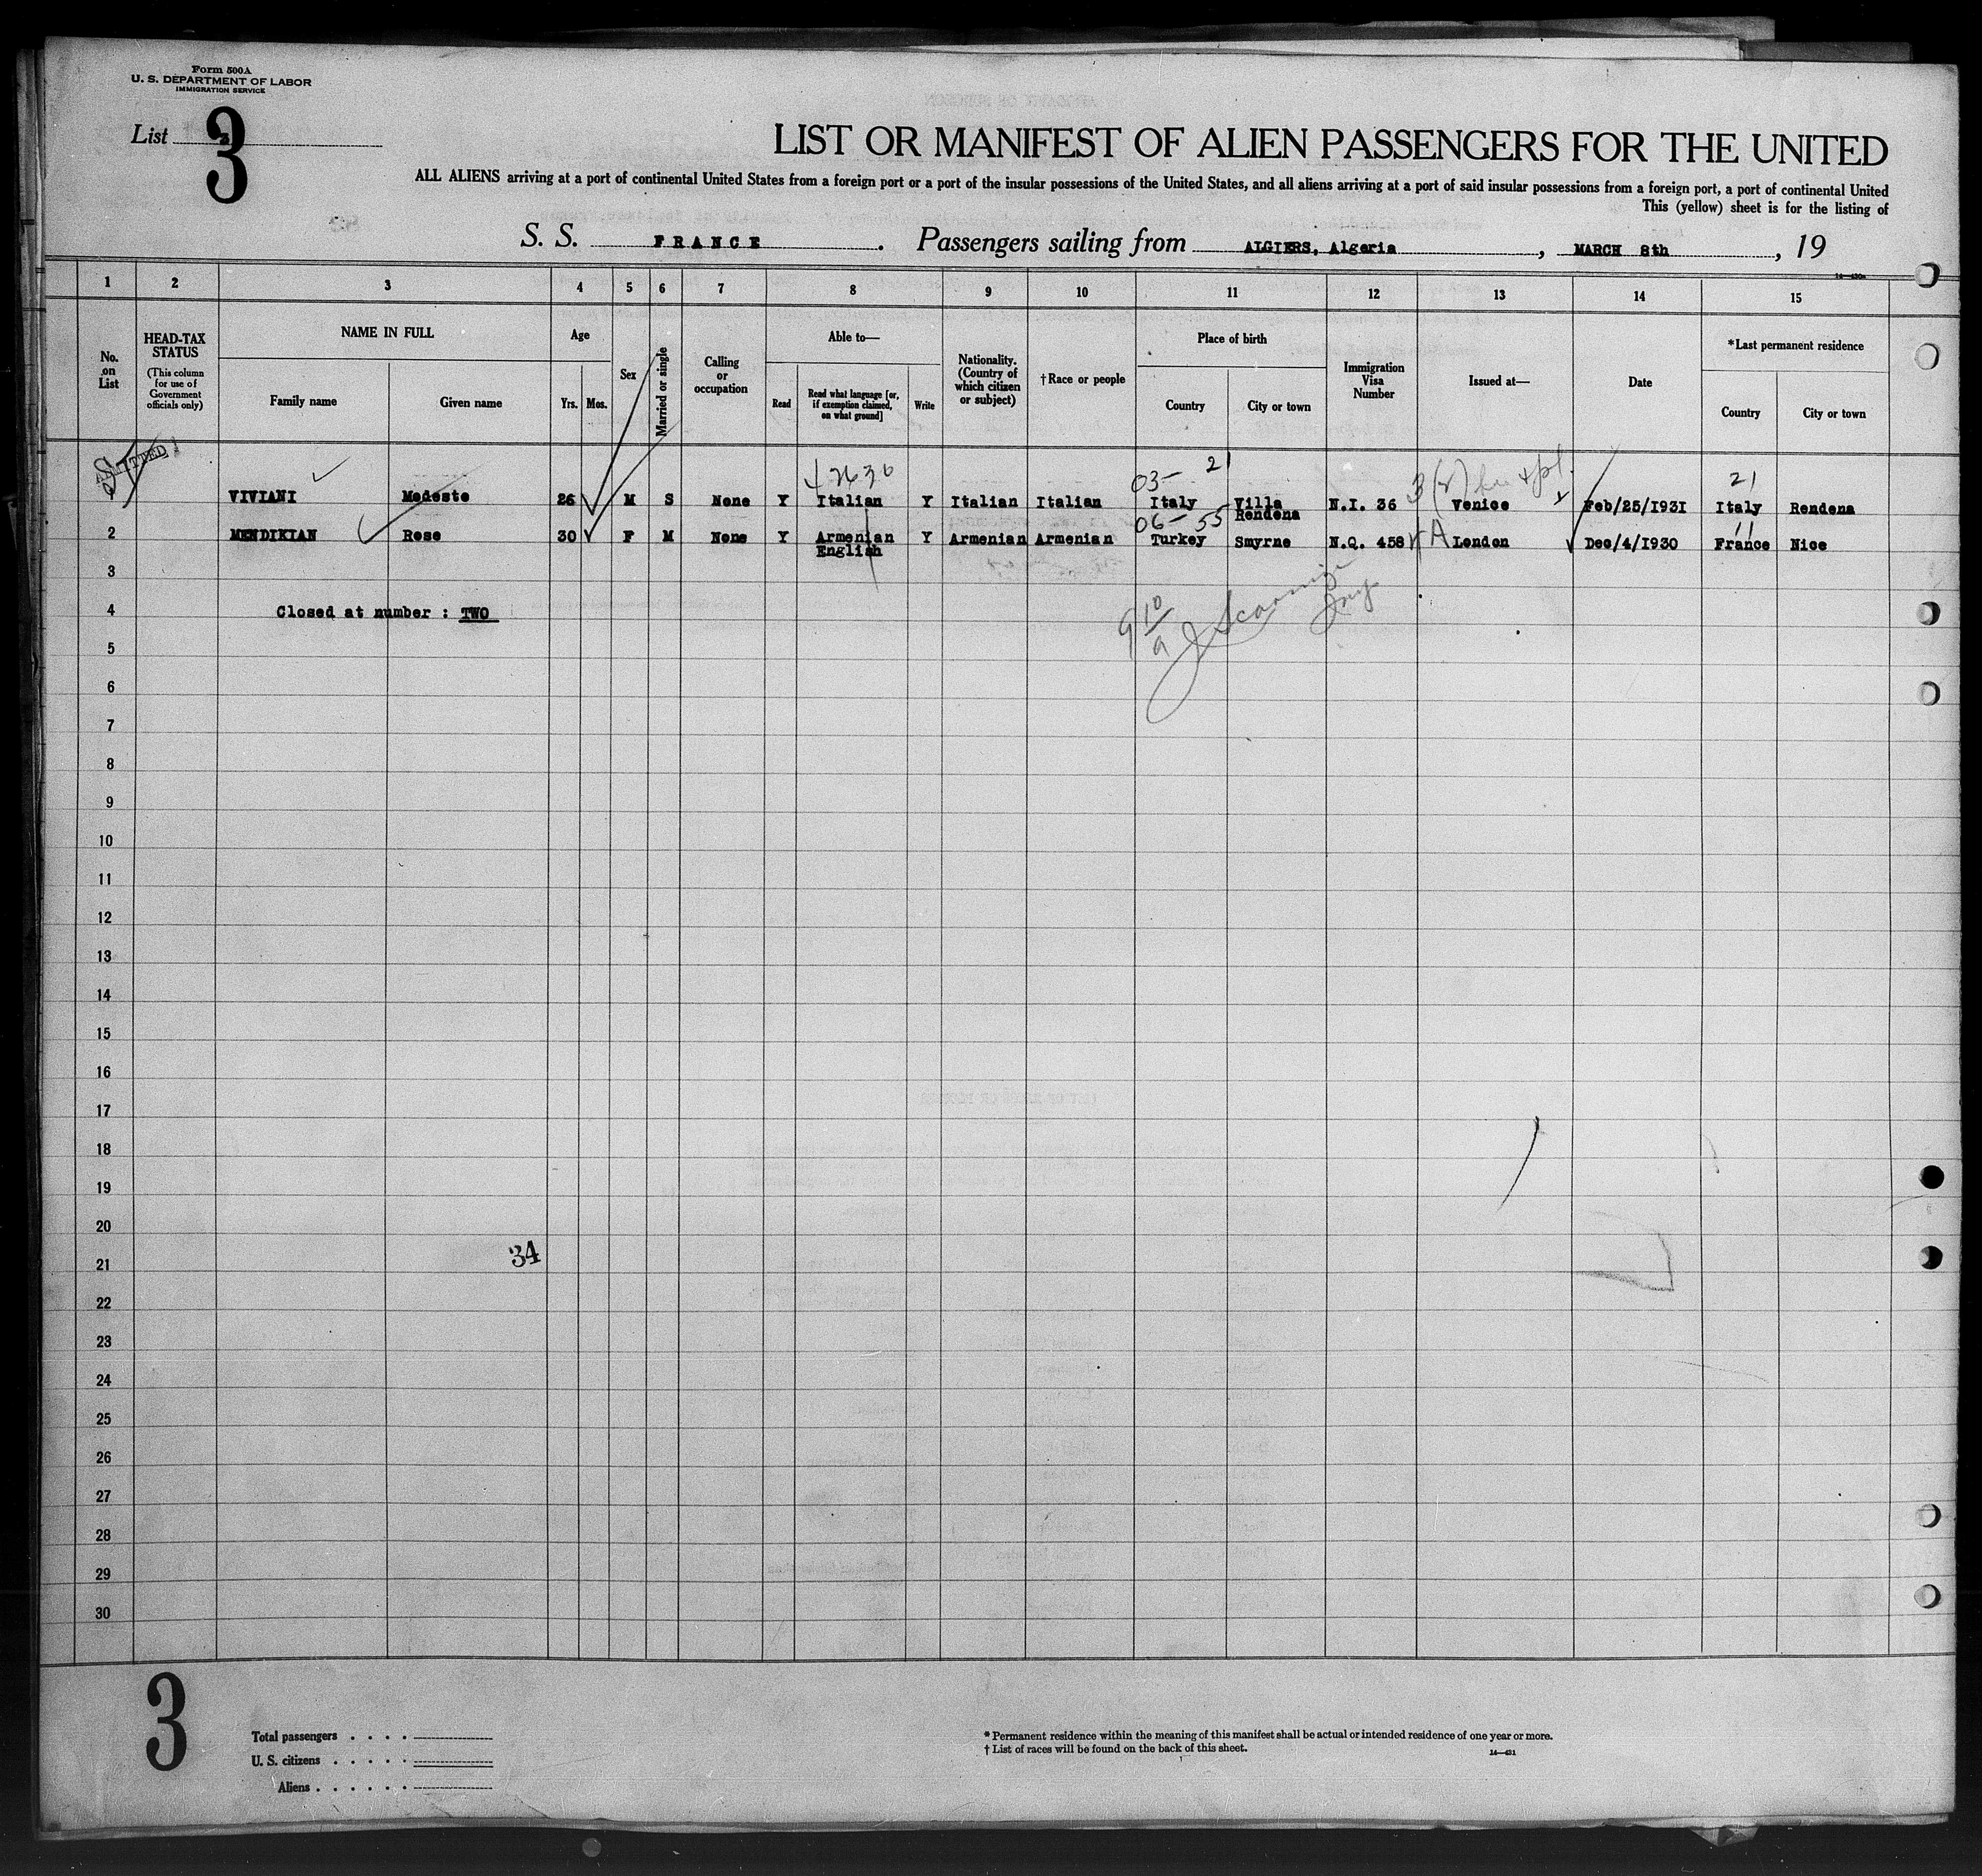 Form 500A
U. S. DEPARTMENT OF LABOR
IMMIGRATION SERVICE
List 3
3
LIST OR MANIFEST OF ALIEN PASSENGERS FOR THE UNITED
ALL ALIENS arriving at a port of continental United States from a foreign port or a port of the insular possessions of the United States, and all aliens arriving at a port of said insular possessions from a foreign port, a port of continental United
This (yellow) sheet is for the listing of
S. S. FRANCE . Passengers sailing from ALGIERS, Algeria , MARCH 8th , 19
1 2 3 4 5 6 7 8 9 10 11 12 13 14 15
No. on List
HEAD-TAX STATUS (This column for use of Government officials only)
NAME IN FULL
Family name Given name
Age
Yrs. Mos.
Sex
Married or single
Calling or occupation
Able to—
Read Read what language [or, if exemption claimed, on what ground] Write
Nationality. (Country of which citizen or subject)
†Race or people
Place of birth
Country City or town
Immigration Visa Number
Issued at—
Date
*Last permanent residence
Country City or town
ADMITTED
03- 21 21
1 VIVIANI Modesto 26 M S None Y Italian Y Italian Italian Italy Villa Rendena N.I. 36 Venice Feb/25/1931 Italy Rendena
06- 55 11
2 MENDIKIAN Rose 30 F M None Y Armenian English Y Armenian Armenian Turkey Smyrne N.Q. 458 A London Dec/4/1930 France Nice
3
4 Closed at number : TWO
5
6
7
8
9
10
11
12
13
14
15
16
17
18
19
20
34
21
22
23
24
25
26
27
28
29
30
3
Total passengers . . . .
U. S. citizens . . . . .
Aliens . . . . . .
* Permanent residence within the meaning of this manifest shall be actual or intended residence of one year or more.
† List of races will be found on the back of this sheet.
14—431